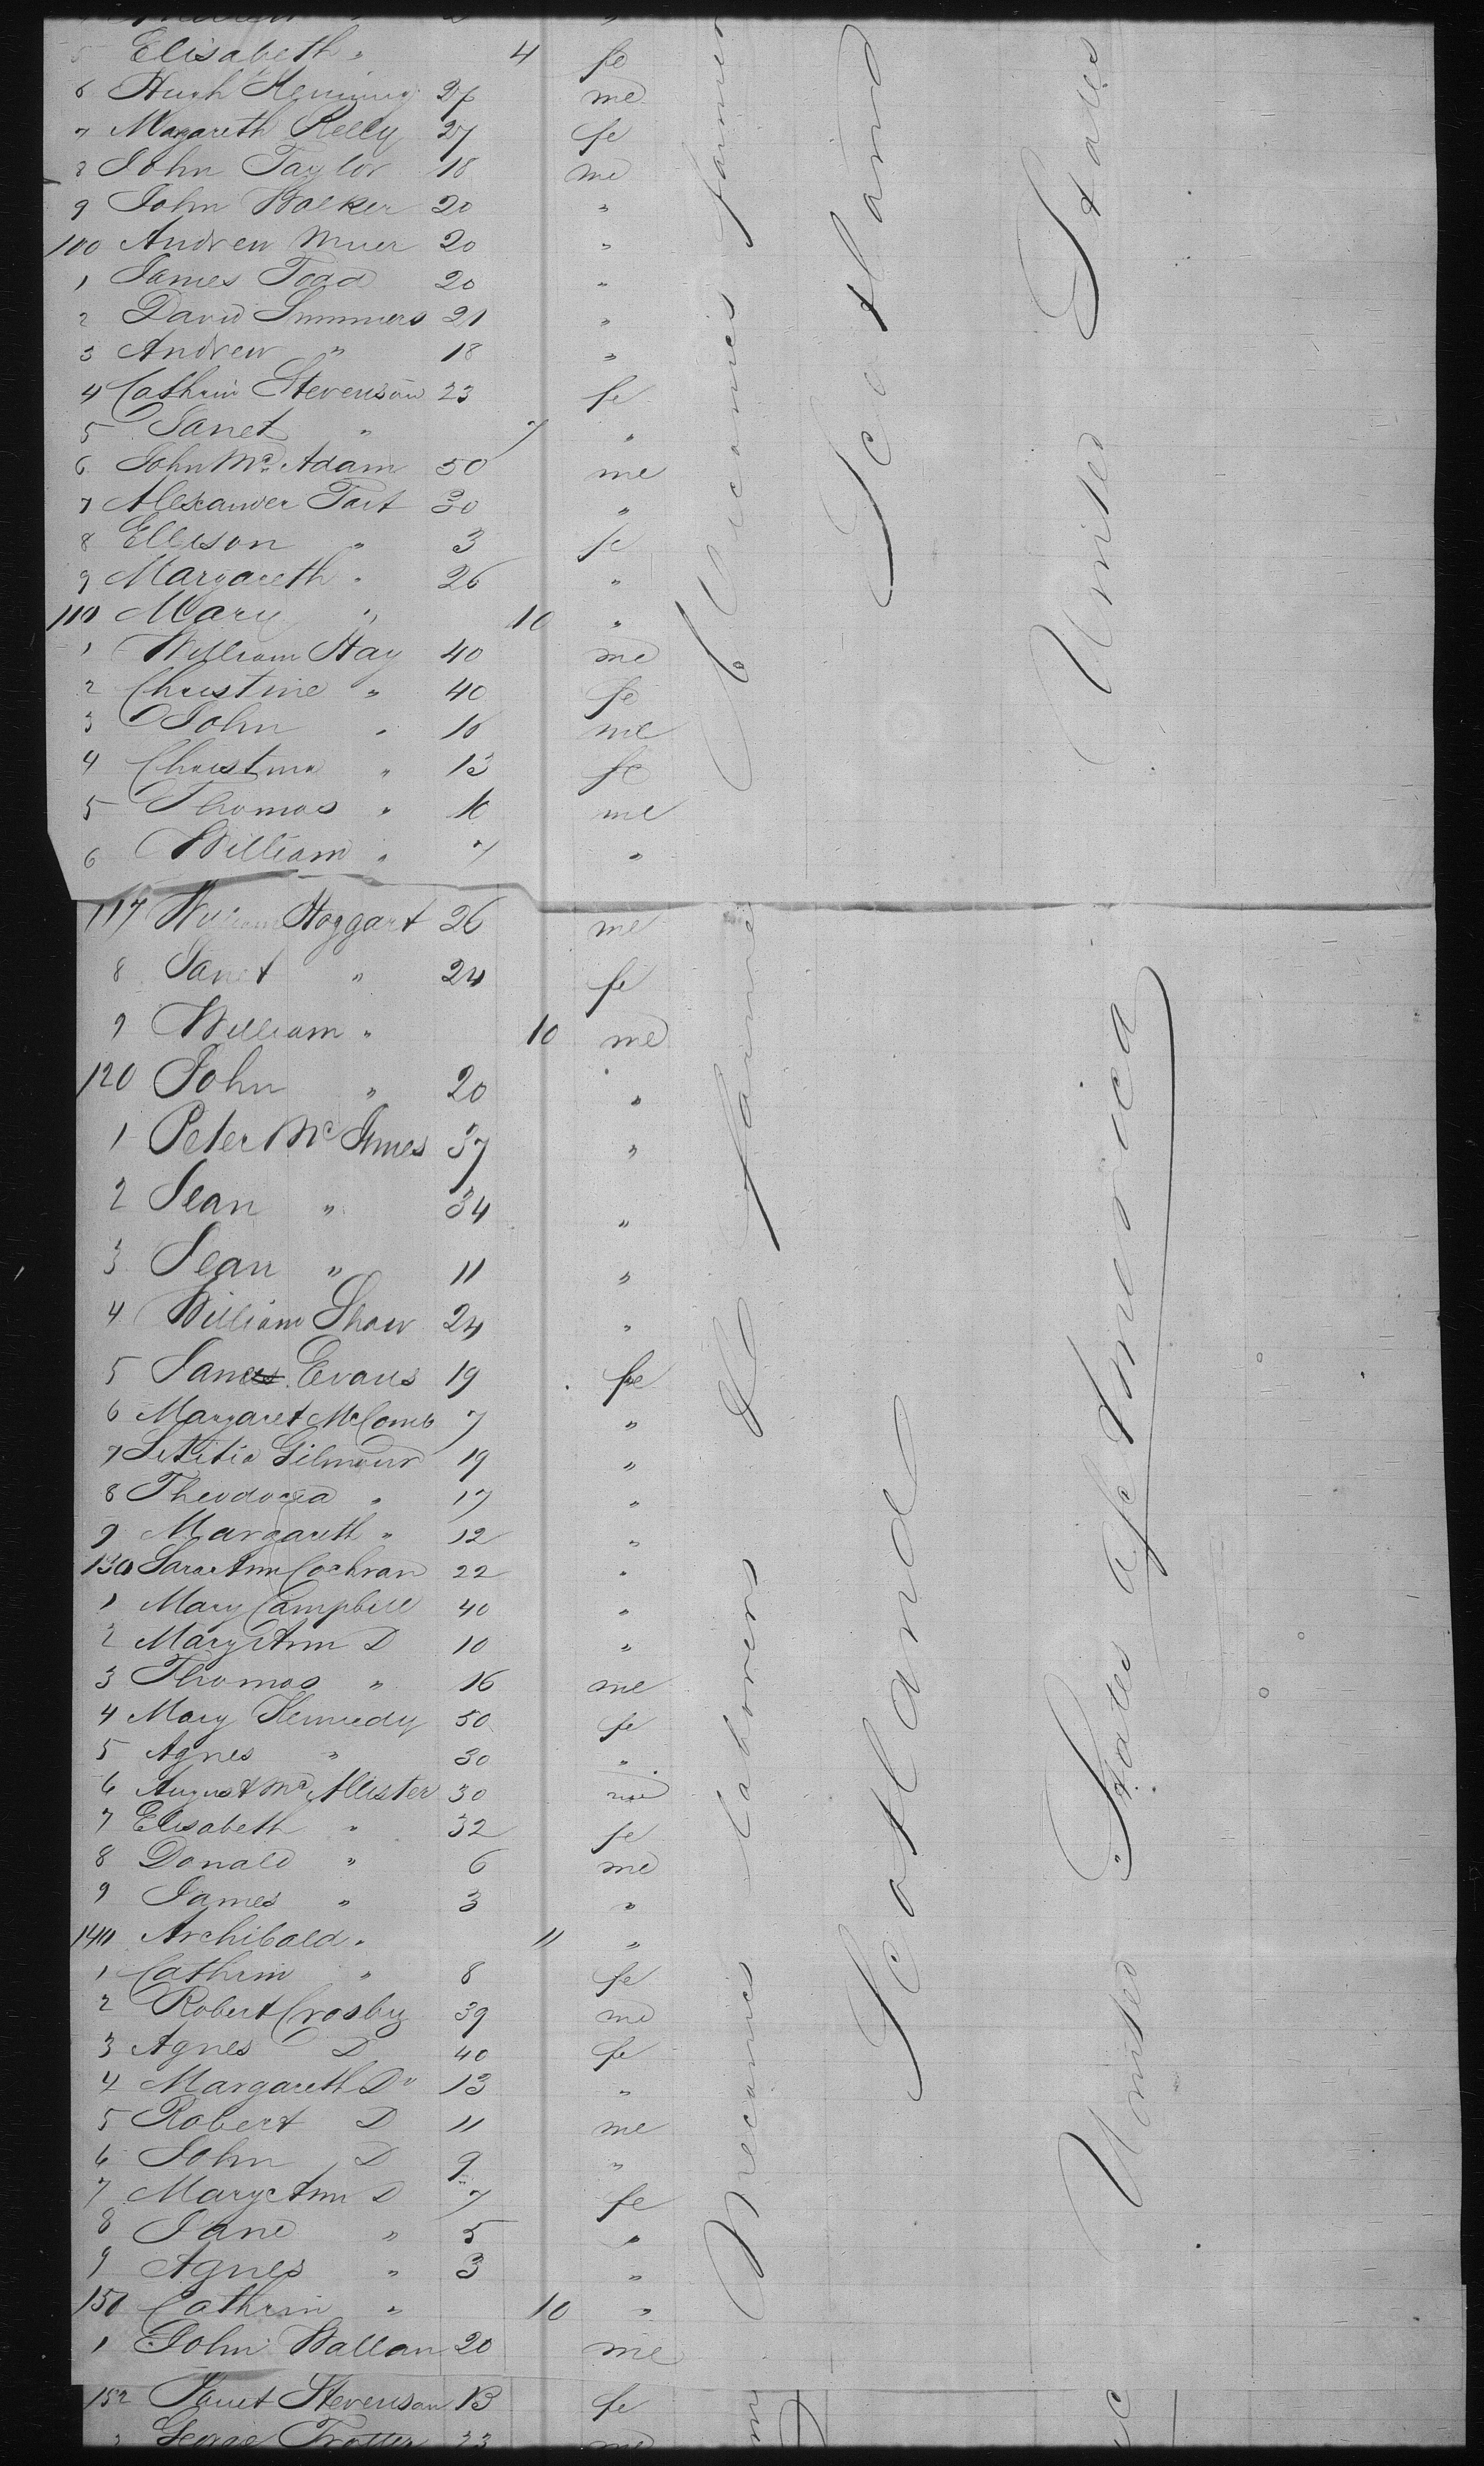 5 Elisabeth " 4 fe
6 Hugh 27 me
7 Magareth Kelly 27 fe
8 John Taylor 18 me
9 John Walker 20 "
100 Andrew Muer 20 "
1 James Todd 20 "
2 David Summers 21 "
3 Andrew " 18 "
4 Cathrin Stevenson 23 fe
5 Janet " 7 "
6 John Mc Adam 50 me
7 Alexander Tait 30 "
8 Ellison " 3 fe
9 Margareth " 26 "
110 Mary " 10 "
1 William Hay 40 me
2 Christine " 40 fe
3 John " 16 me
4 Christina " 13 fe
5 Thomas " 10 me
6 William " 7 "
117 William Hoggart 26 me
8 Janet " 24 fe
9 William " 10 me
120 John " 20 "
1 Peter Mc Innes 37 "
2 Jean " 34 "
3 Jean " 11 "
4 William Shaw 24 "
5 James Evans 19 fe
6 Margaret McComb 7 "
7 Letitia Gilmour 19 "
8 Theodocia " 17 "
9 Margareth " 12 "
130 Sara Ann Cochran 22 "
1 Mary Campbell 40 "
2 Mary Ann D 10 "
3 Thomas " 16 me
4 Mary Kennedy 50 fe
5 Agnes " 30 "
6 August Mc Allister 30 me
7 Elisabeth " 32 fe
8 Donald " 6 me
9 James " 3 "
140 Archibald " 11 "
1 Cathrin " 8 fe
2 Robert Crosby 39 me
3 Agnes D 40 fe
4 Margareth Do 13 "
5 Robert D 11 me
6 John D 9 "
7 Mary Ann D 7 fe
8 Jane " 5 "
9 Agnes " 3 "
150 Cathrin " 10 "
1 John Wallan 20 me
152 Janet Stevenson 13 fe
3 George Trotter 23 me
Mecanics farmer
Scotland
United States
Mecanics Laborers & farmer
Scotland
United States of America